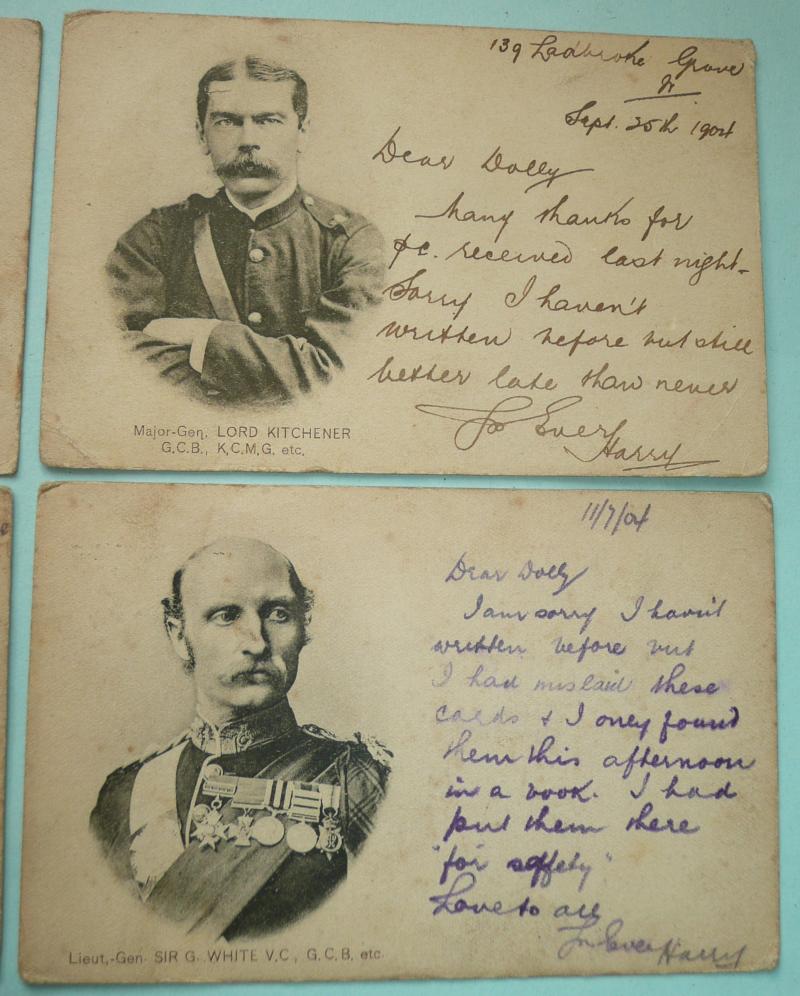 139 Ladbroke Grove
W
Sept. 25th 1904
Dear Dolly
Many thanks for
pc. received last night-
Sorry I haven't
written before but still
better late than never
Yr Ever
Harry
Major-Gen. LORD KITCHENER
G.C.B., K.C.M.G. etc.
11/7/04
Dear Dolly
I am sorry I havn't
written before but
I had mislaid these
cards & I only found
them this afternoon
in a book. I had
put them there
"for saffety"
Love to all
Yr Ever Harry
Lieut.-Gen. SIR G. WHITE V.C., G.C.B. etc.